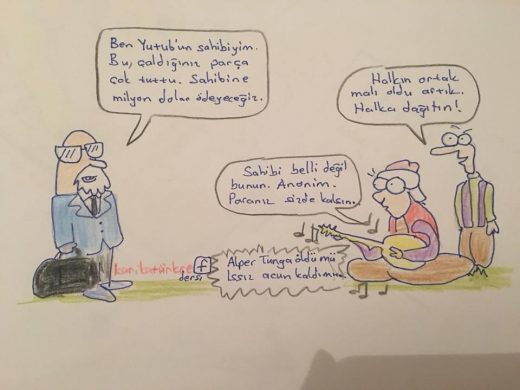 Ben Yutub'un sahibiyim.
Bu, çaldığınız parça
çok tuttu. Sahibine
milyon dolar ödeyeceğiz.
Halkın ortak
malı oldu artık.
Halka dağıtın!
Sahibi belli değil
bunun. Anonim.
Paranız sizde kalsın.
karikatürkçe
dersi
f
Alper Tunga öldü mü
Issız acun kaldı mı